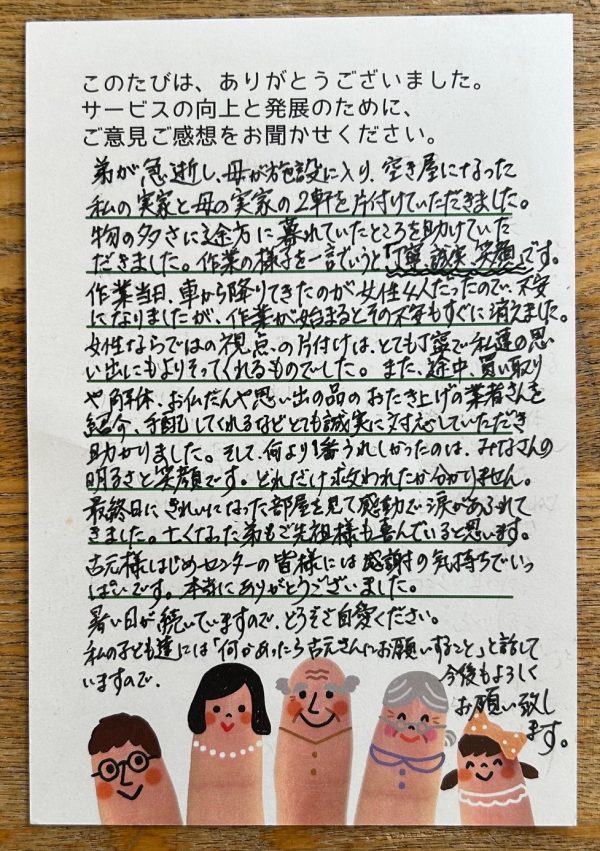 このたびは、ありがとうございました。
サービスの向上と発展のために、
ご意見ご感想をお聞かせください。
弟が急逝し、母が施設に入り、空き屋になった
私の実家と母の実家の2軒を片付けていただきました。
物の多さに途方に暮れていたところを助けていた
だきました。作業の様子を一言でいうと「丁寧、誠実、笑顔」です。
作業当日、車から降りてきたのが女性4人だったので、不安
になりましたが、作業が始まるとその不安もすぐに消えました。
女性ならではの視点の片付けは、とても丁寧で私達の思
い出にもよりそってくれるものでした。また、途中、買い取り
や解体、お仏だんや思い出の品のおたき上げの業者さんを
紹介、手配してくれるなどとても誠実に対応していただき
助かりました。そして、何より1番うれしかったのは、みなさんの
明るさと笑顔です。どれだけ救われたか分かりません。
最終日に、きれいになった部屋を見て感動で涙があふれて
きました。亡くなった弟もご先祖様も喜んでいると思います。
古元様はじめセンターの皆様には感謝の気持ちでいっ
ぱいです。本当にありがとうございました。
暑い日が続いていますので、どうぞご自愛ください。
私の子ども達には「何かあったら古元さんにお願いすること」と話して
いますので、
今後もよろしく
お願い致し
ます。